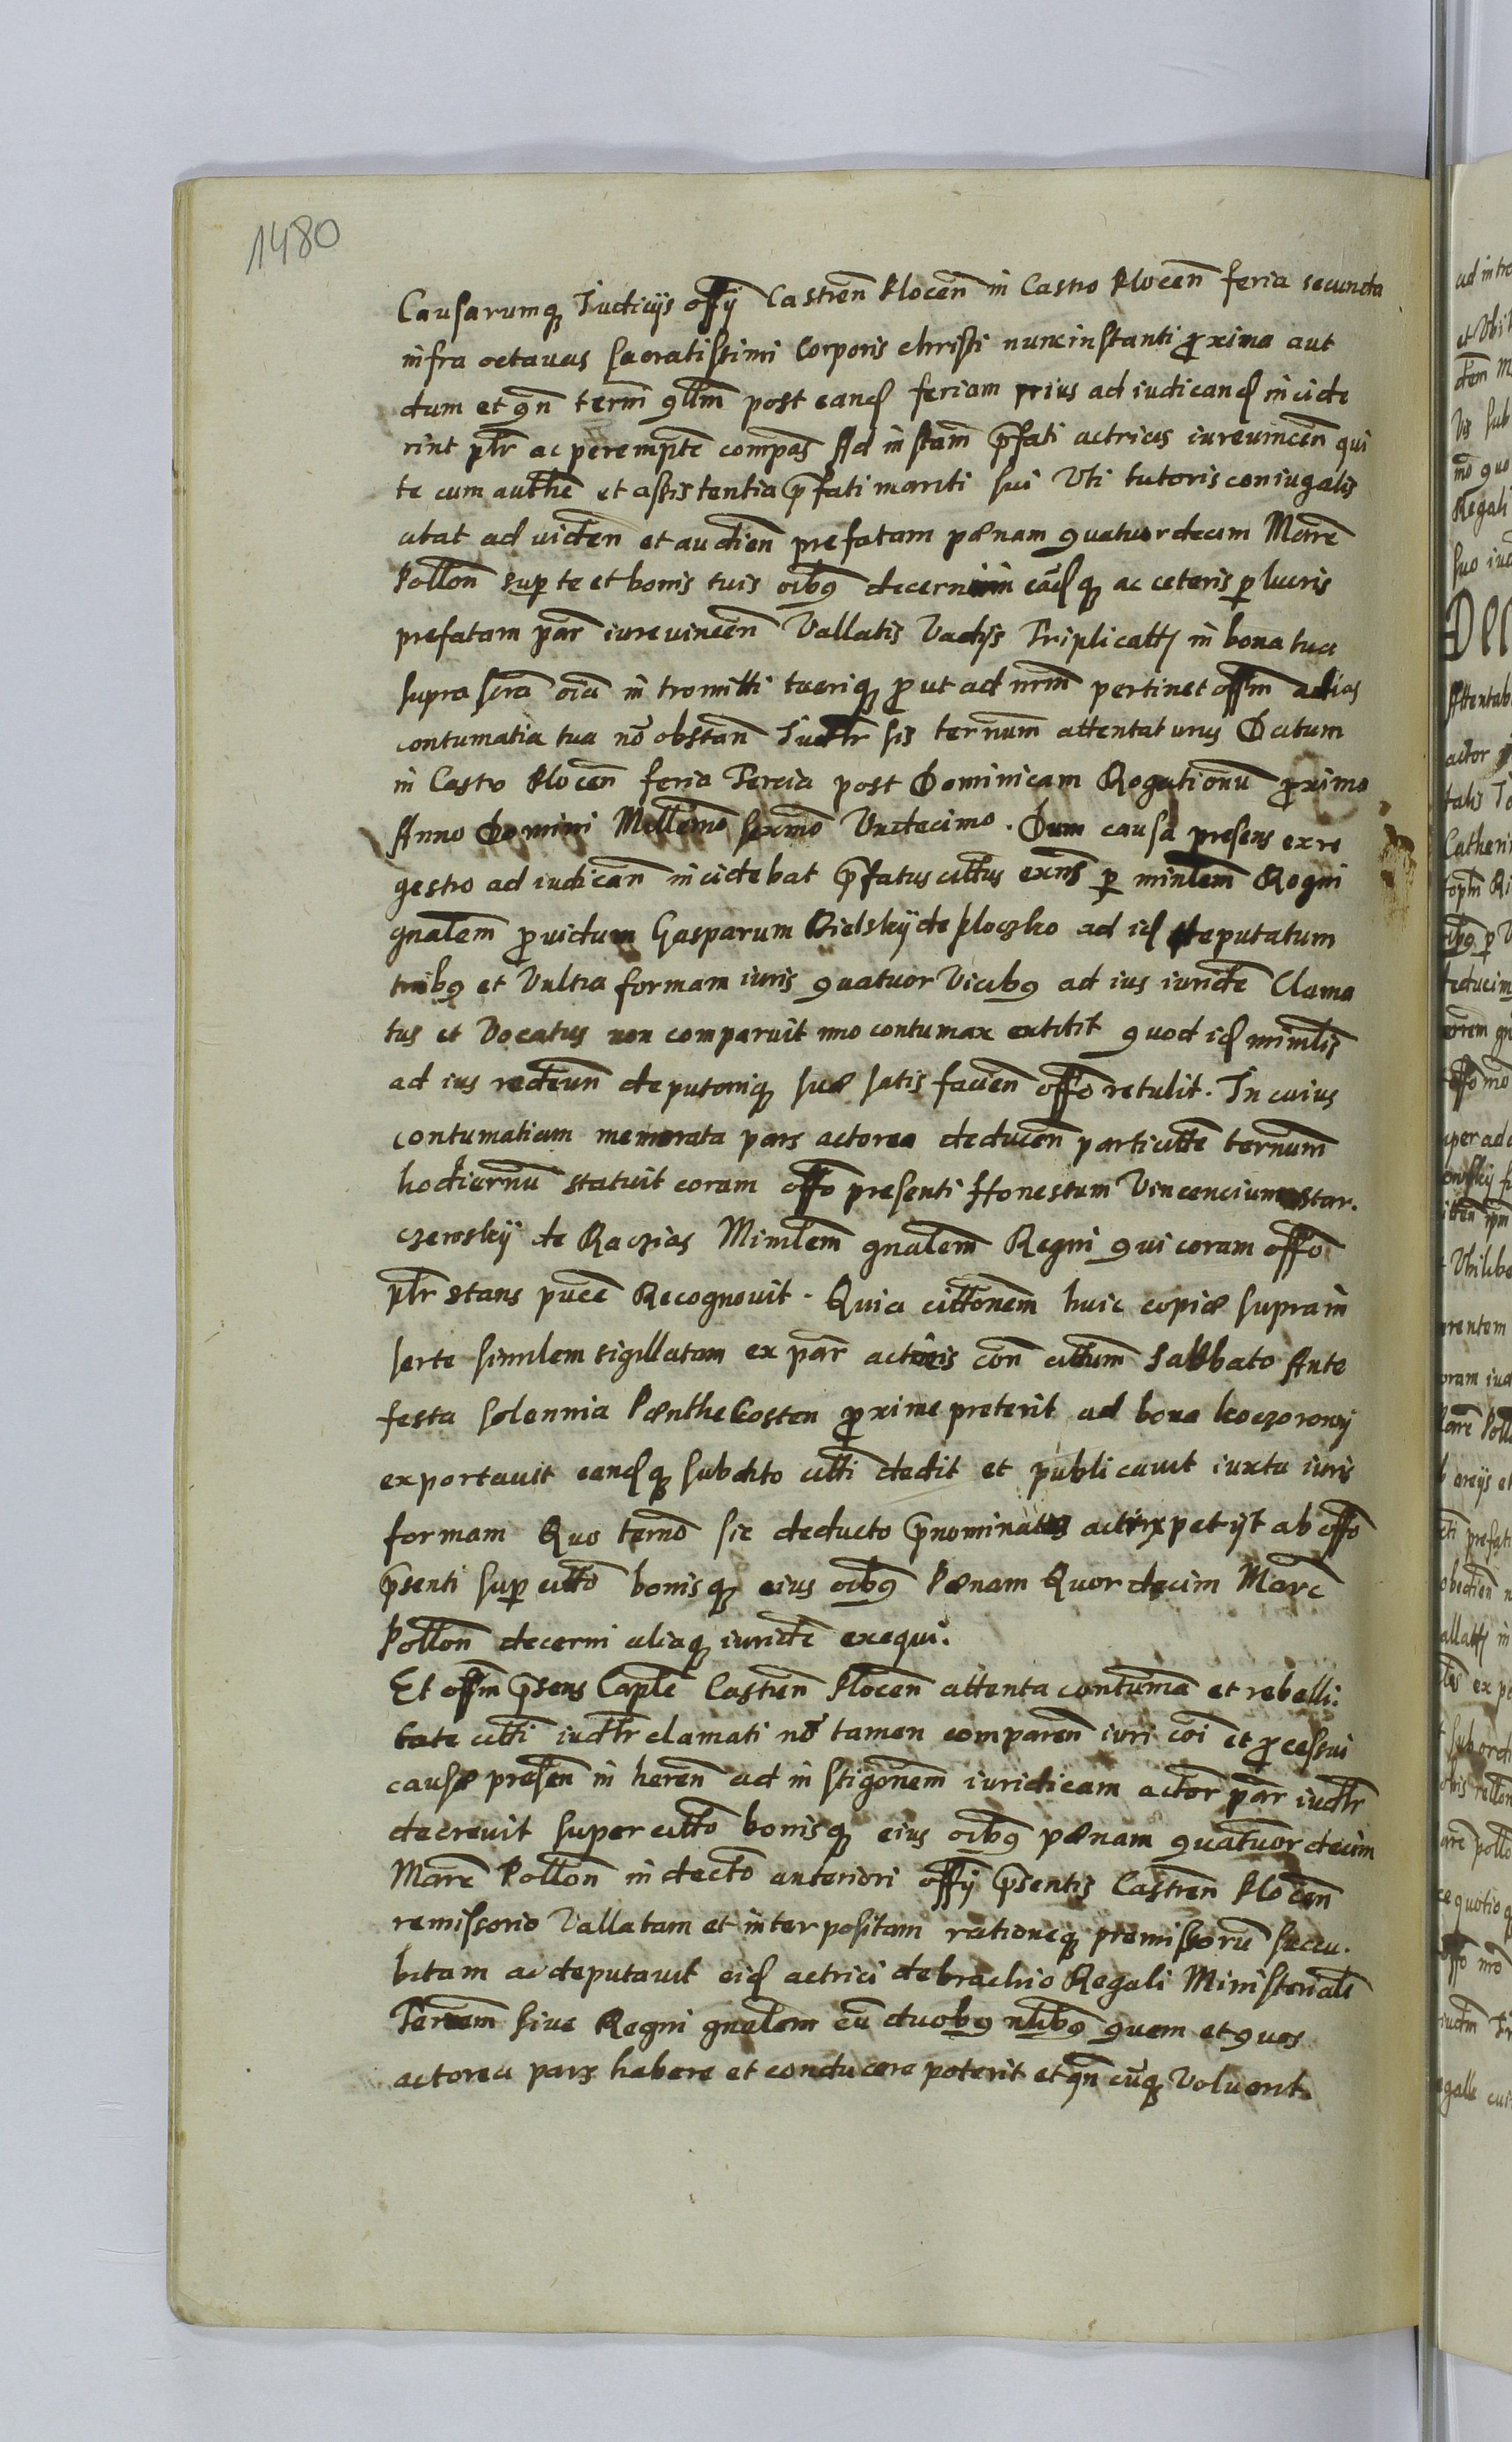 1480
Causarumq Iudicijs offÿ Castren̄ Plocen̄ in Castro Plocen̄ feria secunda
infra octauas sacratissimi Corporis christi nunc instanti proxima aut
dum et qn̄ term̄ post eand feriam prius ad iudicand incide
rint plr̄ ac peremptē compas Ad instam̄ p̄fati actricis iureuincen̄ qui
te cum authē et assistentia p̄fati mariti sui Vti tutoris coniugalis
citat ad uiden̄ et audien̄ prefatam pænam quatuordecim Marc̄
Pollon̄ sup te et bonis tuis oib9 decerni in eād q ac ceteris p lucris
prefatam par̄ iureuincen̄ Vallatis Vadijs Triplicatt in bona tua
supra scrā oīa intromitti tueriq prout ad nrm̄ pertinet offm̄ adias
contumatia tua nō obstan̄ Iudlr̄ sis ternum̄ attentaturus Datum
in Castro Plocen̄ feria Tercia post Dominicam Rogationū proxima
Anno Domini Mellemō sexmō Vndecimo. Dum causa presens ex re
gestro ad iudican̄ incidebat p̄fatus cittus exn̄s p minlem̄ Regni
gnalem̄ prouidum Gasparum Bielskÿ de ploczko ad id deputatum
trib9 et Vultra formam iuris quatuor Vicib9 ad ius iuridē Clama
tus et Vocatus non comparuit imo contumax extitit quod id minilis̄
ad ius redeun̄ deputoniq suæ satisfacien̄ offō retulit. In cuius
contumatiam memorata pars actorea deducen̄ particulē ternum̄
hodiernū statuit coram offō presenti Honestum Vincencium Star.
czewskÿ de Raczias Minilem̄ gnalem̄ Regni qui coram offō
plr̄ stans puce Recognouit. Quia cittonem̄ huic copiæ supra in
serte similem sigillatam ex par̄ actoris con̄ cittum̄ Sabbato Ante
festa solennia Pænthecosten proxime preterit ad bona koczorowÿ
exportauit eandq subdito citti dedit et publicauit iuxta iuris
formam Quo ternō sic deducto p̄nominatus actrix petÿt ab offō
p̄senti sup cittō bonisq eius oib9 Pænam Quordecim Marc̄
Pollon̄ decerni aliaq iuridē exequi.
Et offm̄ p̄sens Caplē Castren̄ Plocen̄ attenta contumā et rebelli:
tate citti iudlr̄ clamati nō tamen comparen̄ iuri cōi et processui
causæ presen̄ in heren̄ ad instigonem̄ iuridicam actor̄ par̄ iudlr̄
decreuit super cittō bonisq eius oib9 pænam quatuordecim
Marc̄ Pollon̄ in dectō anteriori offÿ p̄sentis Castren̄ Plocen̄
remissorio Vallatam et interpositam rationeq premissorū succu.
bitam ac deputauit eid actrici de brachio Regali Ministerialē
Terrem̄ siue Regni gnalem̄ cū duob9 nlib9 quem et quos
actorea pars habere et conducere poterit et qn̄ cūq Voluerit